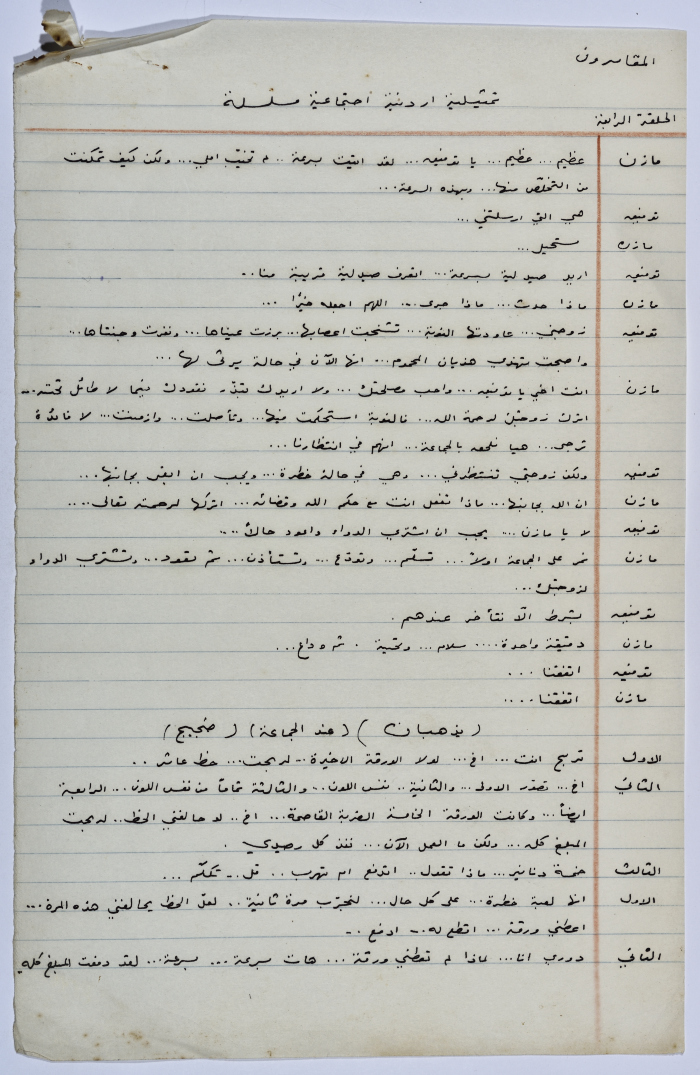 المقامرون
تمثيلية اردنية اجتماعية مسلسلة
الحلقة الرابعة
مازن عظيم ... عظيم ... يا توفيق ... لقد اتيت بسرعة .. لم تخيّب املي ... ولكن كيف تمكنت
من التخلّص منها ... وبهذه السرعة ...
توفيق هي التي ارسلتني ...
مازن مستحيل ...
توفيق اريد صيدلية بسرعة ... اتعرف صيدلية قريبة منا ..
مازن ماذا حدث ... ماذا جرى ... اللهم اجعله خيرًا ...
توفيق زوجتي ... عاودتها النوبة ... تشنجت اعصابها ... برزت عيناها ... ونفرت وجنتاها ...
واصبحت تهذي هذيان المحموم ... انها الآن في حالة يرثى لها ...
مازن انت اخي يا توفيق ... واحب مصلحتك ... ولا اريدك تبذّر نقودك فيما لا طائل تحته ...
اترك زوجتك لرحمة الله ... فالنوبة استحكمت فيها ... وتأصلت ... وازمنت ... لا فائدة
ترجى ... هيا نلحق بالجماعة ... انهم في انتظارنا ...
توفيق ولكن زوجتي تنتظرني ... وهي في حالة خطرة ... ويجب ان ابقى بجانبها ...
مازن ان الله بجانبها ... ماذا تفعل انت مع حكم الله وقضائه ... اتركها لرحمته تعالى ....
توفيق لا يا مازن ... يجب ان اشتري الدواء واعود حالاً ....
مازن نمر على الجماعة اولاً ... تسلّم ... وتودّع ... وتستأذن ... ثم تعود ... وتشتري الدواء
لزوجتك ...
توفيق بشرط الّا نتأخر عندهم .
مازن دقيقة واحدة .... سلام ... وتحية . ثم وداع ...
توفيق اتفقنا ...
مازن اتفقنا ....
( يذهبان ) ( عند الجماعة ) ( ضجيج )
الاول تربح انت ... اخ ... لولا الورقة الاخيرة .. لربحت ... حظ عاثر ..
الثاني اخ ... تصوّر الاولى ... والثانية .. نفس اللون .. والثالثة تماماً من نفس اللون ... الرابعة
ايضاً ... وكانت الورقة الخامسة الضربة القاصمة ... اخ .. لو حالفني الحظ .. لربحت
المبلغ كله ... ولكن ما العمل الآن ... نفذ كل رصيدي .
الثالث خمسة دنانير ... ماذا تقول .. اتدفع ام تهرب .. قل .. تكلّم ...
الاول انها لعبة خطرة ... على كل حال ... لنجرّب مرة ثانية .. لعلّ الحظ يحالفني هذه المرة ...
اعطني ورقة ... اقطع له .. ادفع ..
الثاني دوري انا ... لماذا لم تعطني ورقة ... هات بسرعة ... بسرعة ... لقد دفعت المبلغ كله